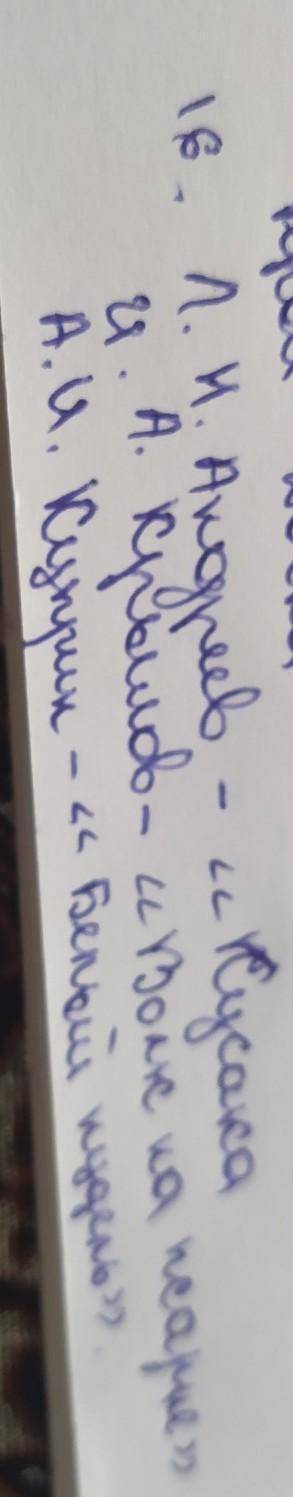 16. Л. Н. Андреев - «Кусака
И. А. Крылов - «Волк на псарне»
А. И. Куприн - «Белый пудель».